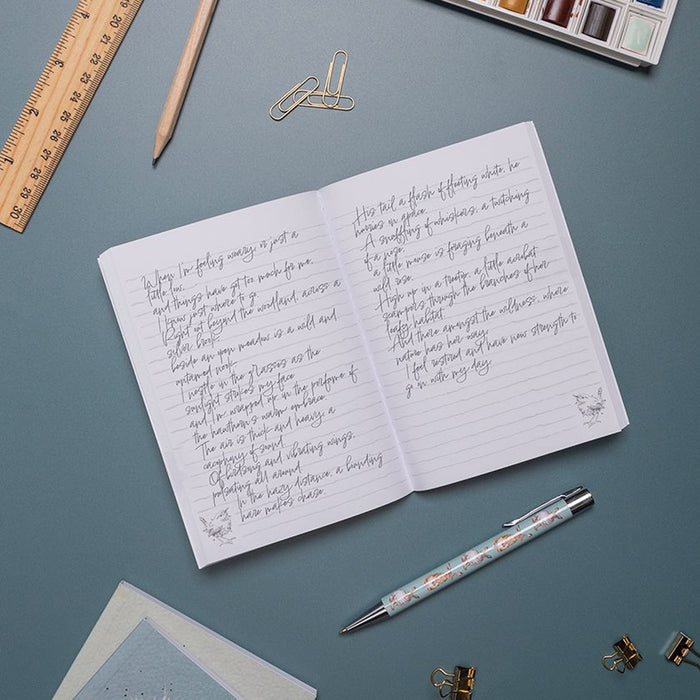 20
21
22
23
24
25
26
27
28
29
30
When I'm feeling weary, or just a
little low,
and things have got too much for me,
I know just where to go.
Right out beyond the woodland, across a
silver brook,
beside an open meadow is a wild and
untamed nook.
I nestle in the grasses as the
sunlight strokes my face
and I'm wrapped up in the perfume of
the hawthorn's warm embrace.
The air is thick and heavy, a
cacophony of sound
Of birdsong and vibrating wings,
pulsating all around.
In the hazy distance, a bounding
hare makes chase,
His tail a flash of fleeting white, he
hurries on apace.
A snuffling of whiskers, a twitching
of a nose,
a little mouse is foraging beneath a
wild rose.
High up in a treetop, a little acrobat
scampers through the branches of her
leafy habitat.
And there amongst the wildness, where
nature has her way,
I feel restored and have new strength to
go on with my day.